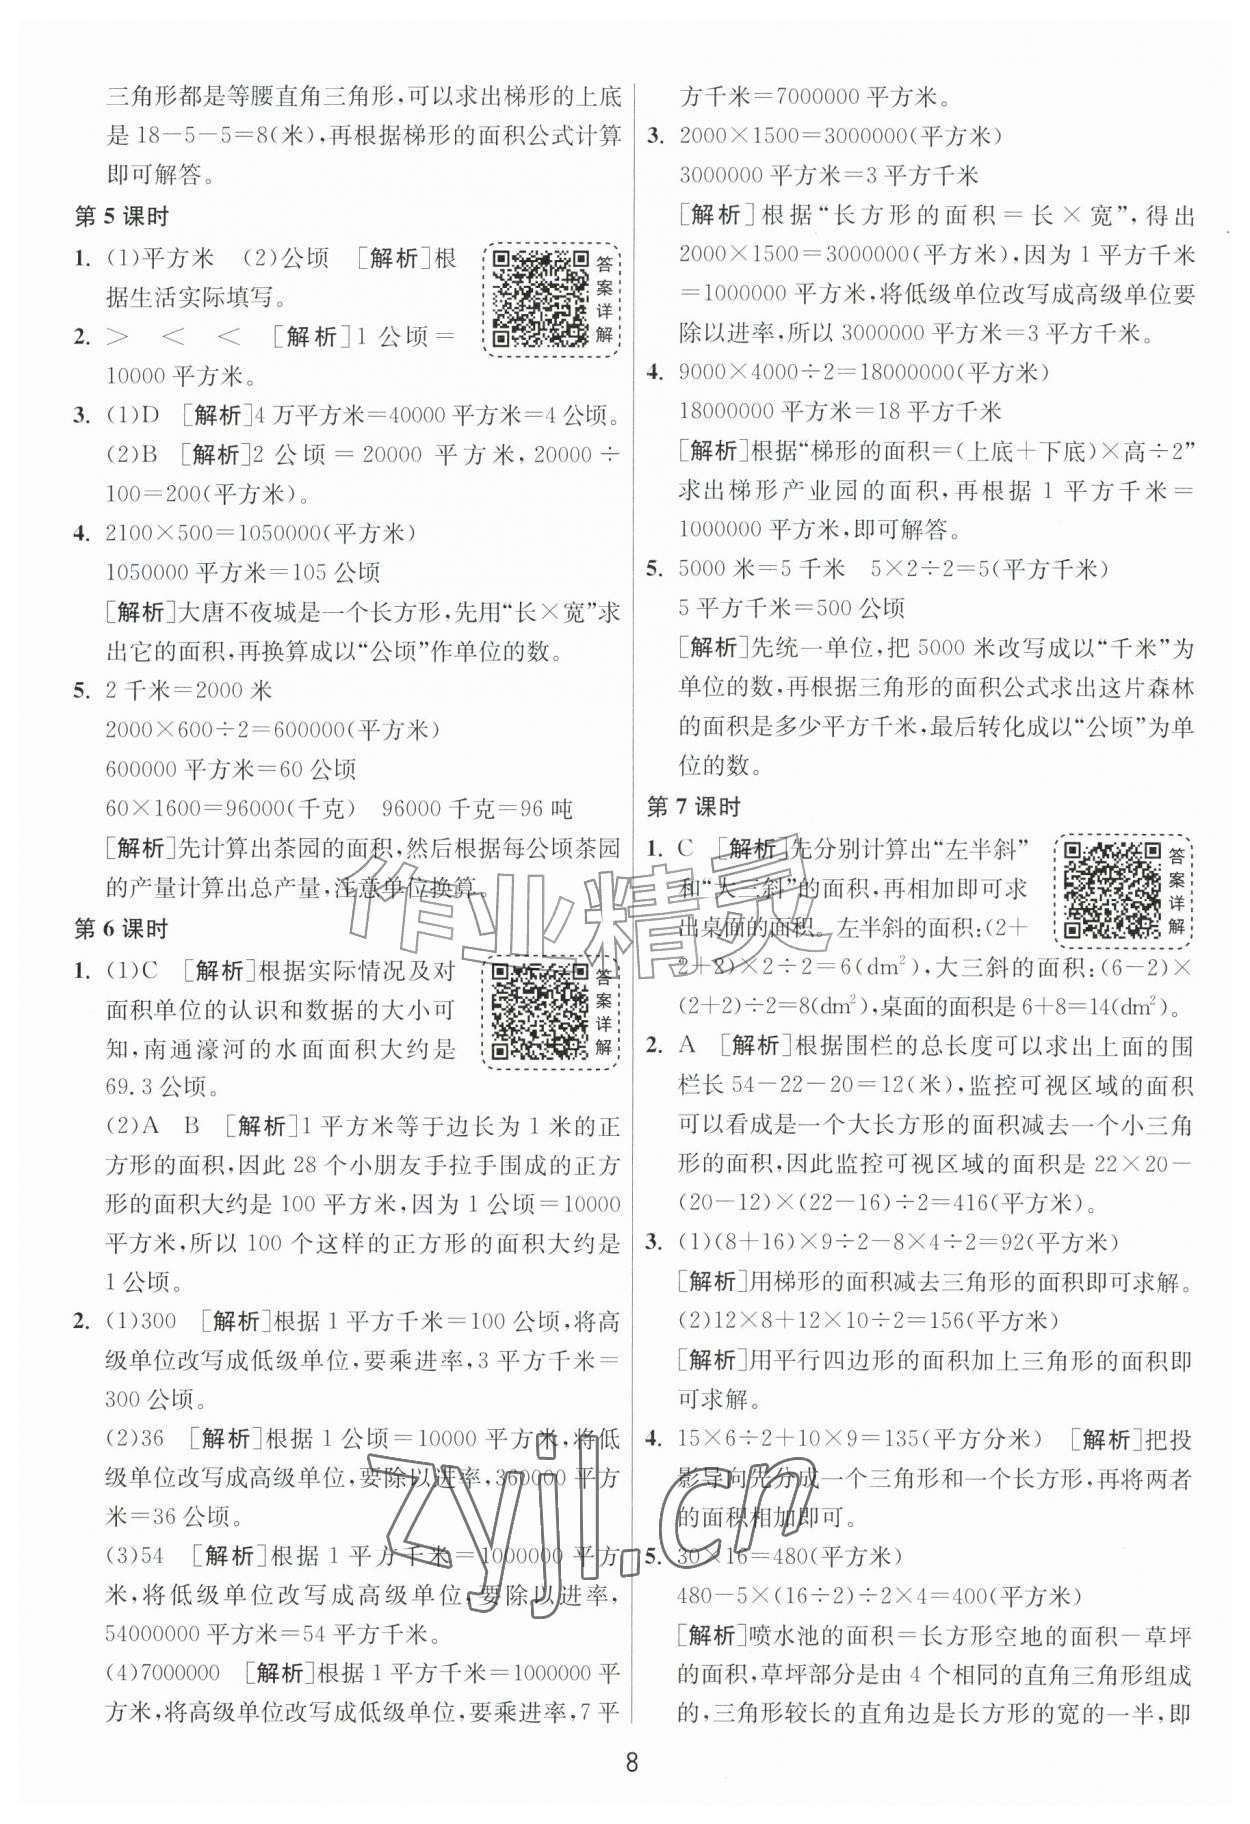 三角形都是等腰直角三角形,可以求出梯形的上底
是18-5-5=8(米),再根据梯形的面积公式计算
即可解答。
第5课时
1. (1)平方米 (2)公顷 [解析]根
据生活实际填写。
答案详解
2. > < < [解析]1公顷=
10000平方米。
3. (1)D [解析]4万平方米=40000平方米=4公顷。
(2)B [解析]2公顷=20000平方米,20000÷
100=200(平方米)。
4. 2100×500=1050000(平方米)
1050000平方米=105公顷
[解析]大唐不夜城是一个长方形,先用“长×宽”求
出它的面积,再换算成以“公顷”作单位的数。
5. 2千米=2000米
2000×600÷2=600000(平方米)
600000平方米=60公顷
60×1600=96000(千克) 96000千克=96吨
[解析]先计算出茶园的面积,然后根据每公顷茶园
的产量计算出总产量,注意单位换算。
第6课时
1. (1)C [解析]根据实际情况及对
面积单位的认识和数据的大小可
知,南通濠河的水面面积大约是
69.3公顷。
答案详解
(2)A B [解析]1平方米等于边长为1米的正
方形的面积,因此28个小朋友手拉手围成的正方
形的面积大约是100平方米,因为1公顷=10000
平方米,所以100个这样的正方形的面积大约是
1公顷。
2. (1)300 [解析]根据1平方千米=100公顷,将高
级单位改写成低级单位,要乘进率,3平方千米=
300公顷。
(2)36 [解析]根据1公顷=10000平方米,将低
级单位改写成高级单位,要除以进率,360000平方
米=36公顷。
(3)54 [解析]根据1平方千米=1000000平方
米,将低级单位改写成高级单位,要除以进率,
54000000平方米=54平方千米。
(4)7000000 [解析]根据1平方千米=1000000平
方米,将高级单位改写成低级单位,要乘进率,7平
方千米=7000000平方米。
3. 2000×1500=3000000(平方米)
3000000平方米=3平方千米
[解析]根据“长方形的面积=长×宽”,得出
2000×1500=3000000(平方米),因为1平方千米
=1000000平方米,将低级单位改写成高级单位要
除以进率,所以3000000平方米=3平方千米。
4. 9000×4000÷2=18000000(平方米)
18000000平方米=18平方千米
[解析]根据“梯形的面积=(上底+下底)×高÷2”
求出梯形产业园的面积,再根据1平方千米=
1000000平方米,即可解答。
5. 5000米=5千米 5×2÷2=5(平方千米)
5平方千米=500公顷
[解析]先统一单位,把5000米改写成以“千米”为
单位的数,再根据三角形的面积公式求出这片森林
的面积是多少平方千米,最后转化成以“公顷”为单
位的数。
第7课时
1. C [解析]先分别计算出“左半斜”
和“大三斜”的面积,再相加即可求
出桌面的面积。左半斜的面积:(2+
答案详解
2+2)×2÷2=6(dm²),大三斜的面积:(6-2)×
(2+2)÷2=8(dm²),桌面的面积是6+8=14(dm²)。
2. A [解析]根据围栏的总长度可以求出上面的围
栏长54-22-20=12(米),监控可视区域的面积
可以看成是一个大长方形的面积减去一个小三角
形的面积,因此监控可视区域的面积是22×20-
(20-12)×(22-16)÷2=416(平方米)。
3. (1)(8+16)×9÷2-8×4÷2=92(平方米)
[解析]用梯形的面积减去三角形的面积即可求解。
(2)12×8+12×10÷2=156(平方米)
[解析]用平行四边形的面积加上三角形的面积即
可求解。
4. 15×6÷2+10×9=135(平方分米) [解析]把投
影导向光分成一个三角形和一个长方形,再将两者
的面积相加即可。
5. 30×16=480(平方米)
480-5×(16÷2)÷2×4=400(平方米)
[解析]喷水池的面积=长方形空地的面积-草坪
的面积,草坪部分是由4个相同的直角三角形组成
的,三角形较长的直角边是长方形的宽的一半,即
作业精灵
zyjl.cn
8